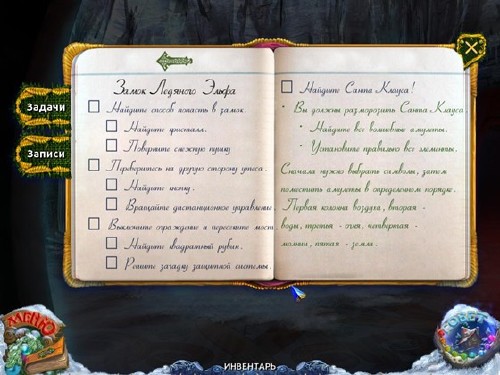 Задачи
Записи
Замок Ледяного Эльфа
Найдите способ попасть в замок.
Найдите кристалл.
Поверните снежную пушку
Переберитесь на другую сторону утеса.
Найдите икону.
Вращайте дистанционное управление.
Выключите ограждение и пересеките мост.
Найдите квадратный рубин.
Решите загадку защитной системы.
Найдите Санта Клауса!
Вы должны разморозить Санта Клауса.
Найдите все волшебные амулеты.
Установите правильно все элементы.
Сначала нужно выбрать символы, затем
поместить амулеты в определенном порядке.
Первая колонна воздуха, вторая -
воды, третья - огня, четвертая -
молнии, пятая - земли.
МЕНЮ
СОВЕТ
ИНВЕНТАРЬ